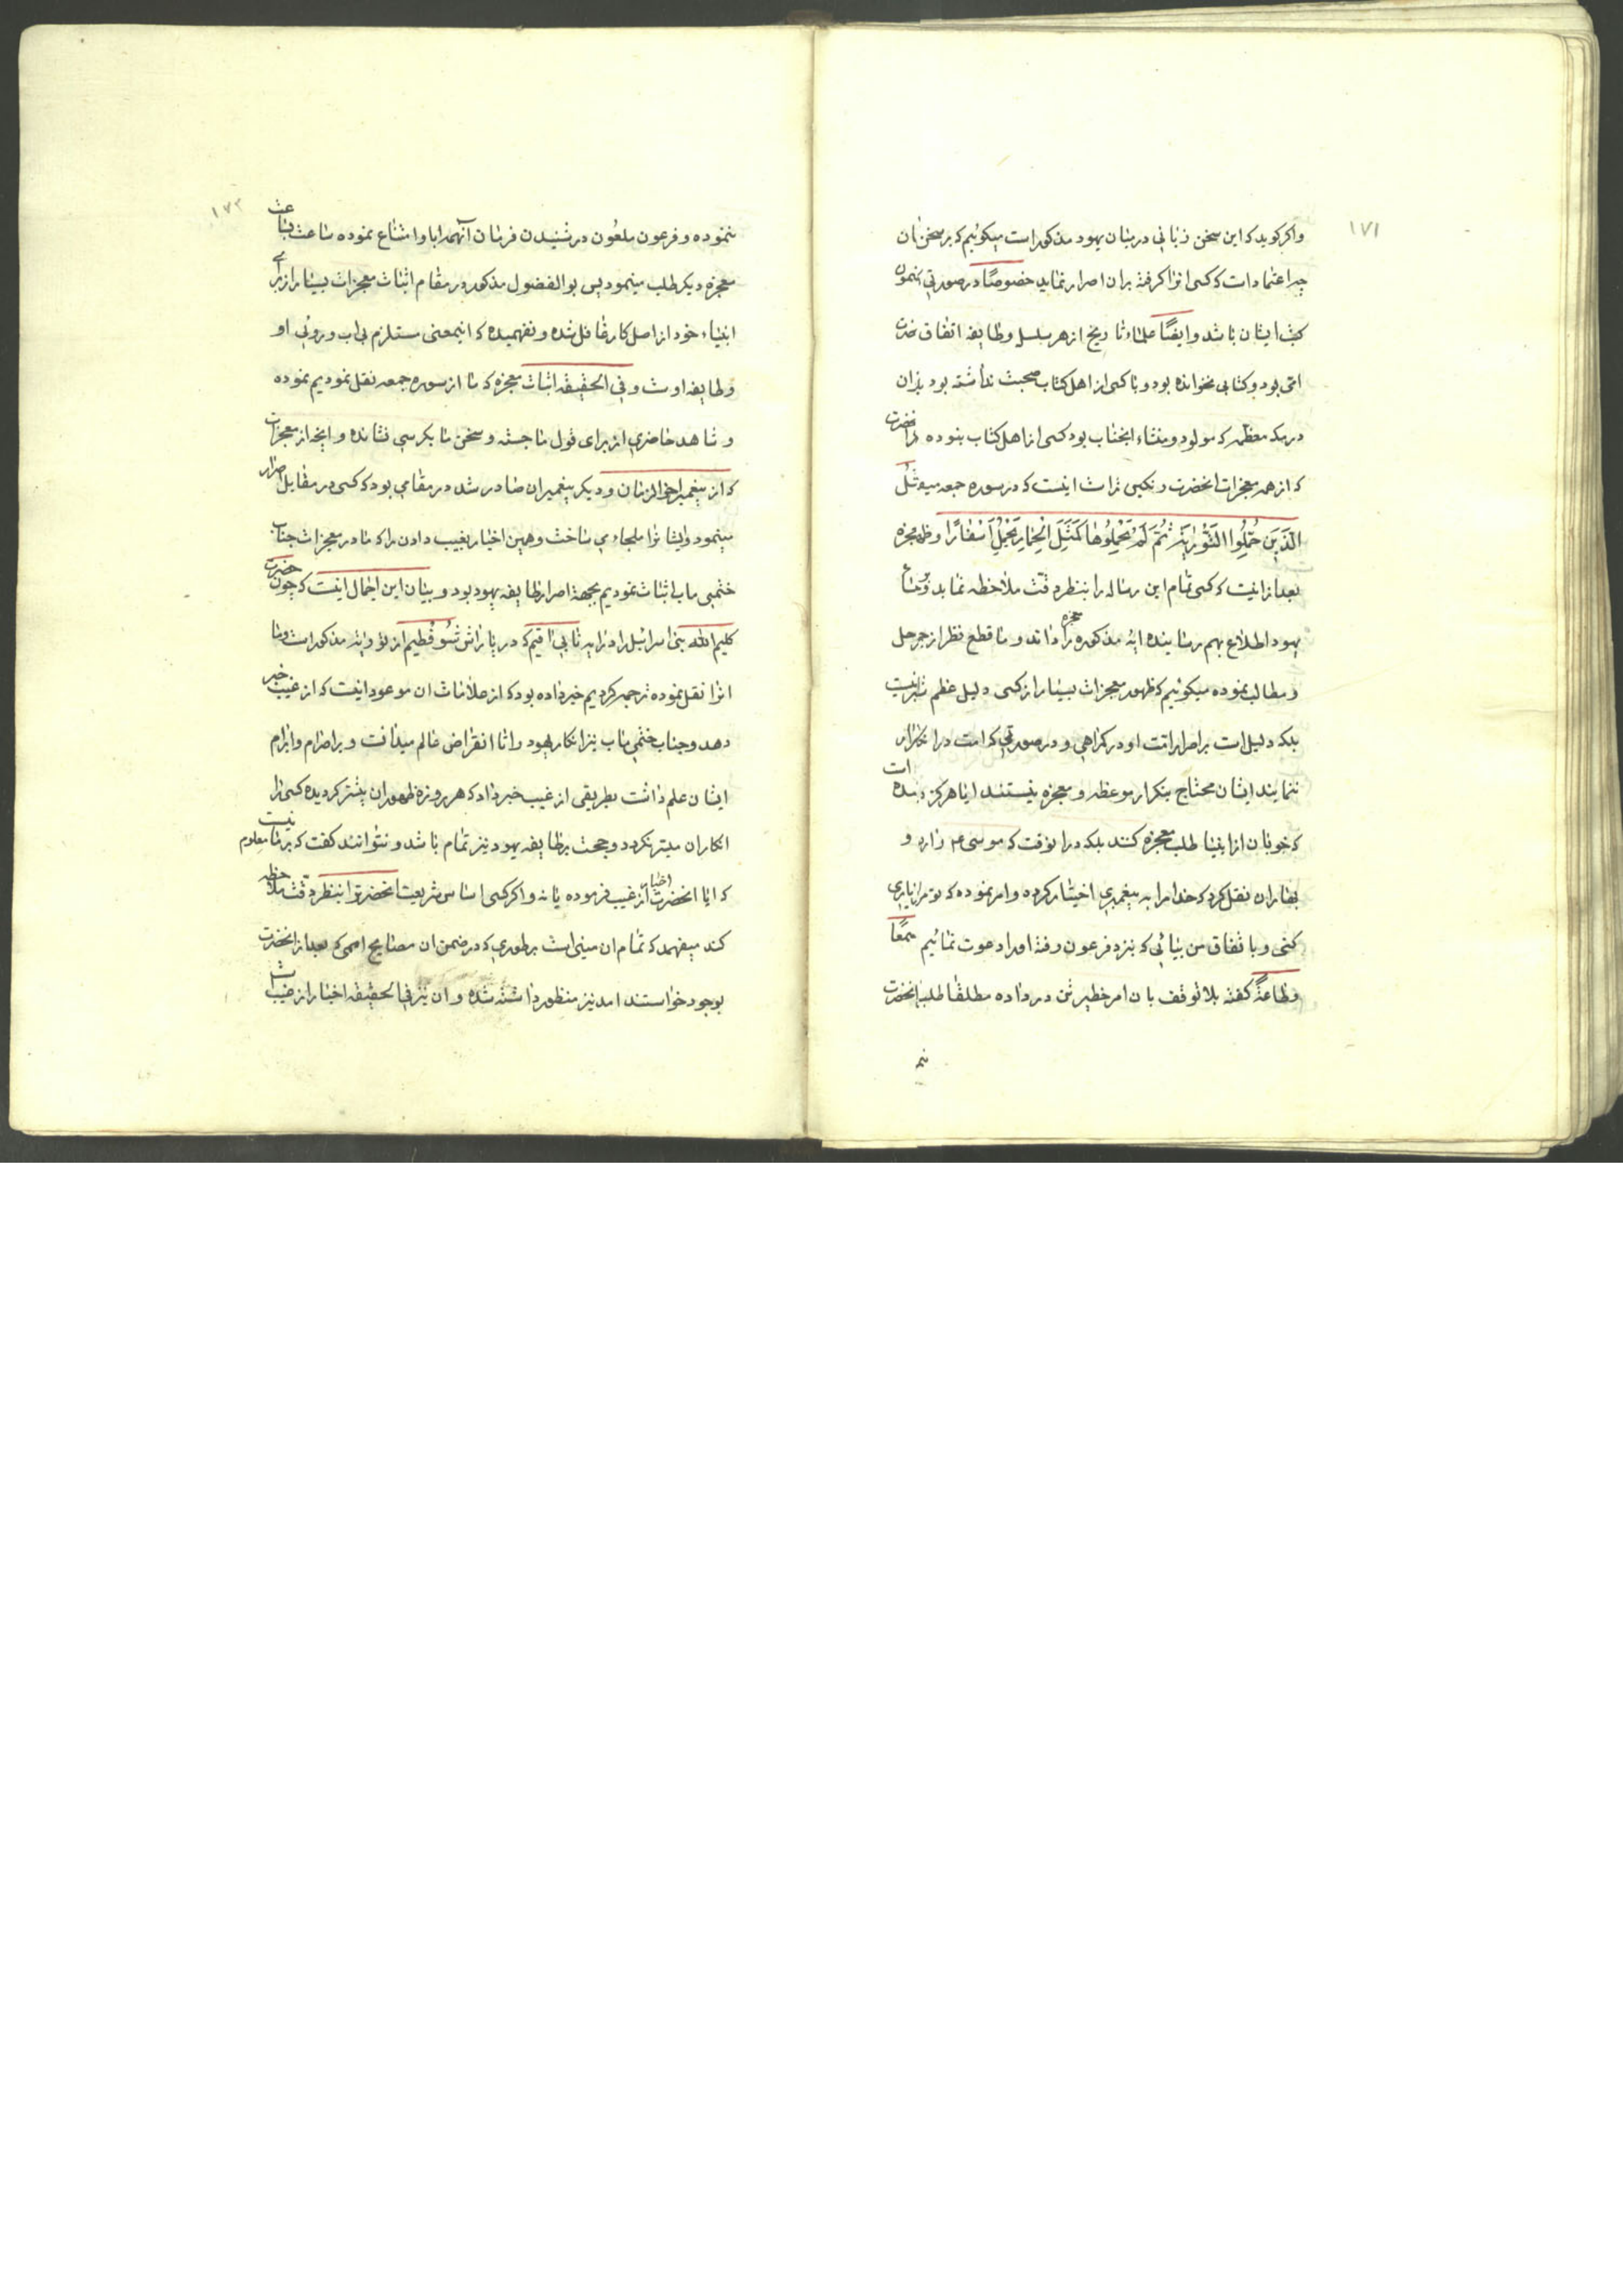 ۱۷۱
واکر کوید که این سخن زبانی در میان یهود مذکور است میکوئیم که بر سخن زبان
چه اعتماد است که کسی انرا کرفته بران اصرار نماید خصوصًا در صورتی
کتب ایشان باشد وایضًا علماء تاریخ از هر سلسله وطایفه اتفاق
امی بود و کتابی نخوانده بود و با کسی از اهل کتاب صحبت نداشته بود بلکه ان
در مکه معظمه که مولد و منشاء انجناب بود کسی از اهل کتاب نبوده
که از همه معجزات انحضرت اینست که در سوره جمعه میفرماید مَثَلُ
الَّذینَ حُمِّلُوا التَّوْرٰیةَ ثُمَّ لَمْ یَحْمِلُوهٰا کَمَثَلِ الْحِمٰارِ یَحْمِلُ اَسْفٰارًا
بعد از انیست که کسی تمام این رساله را بنظر دقت ملاحظه نماید
یهود اطلاع بهم رساند ایه مذکوره را معجزه داند و ما قطع نظر از
ومطالب نموده میکوئیم که ظهور معجزات بسیار از کسی دلیل عظم نیست
بلکه دلیل است بر اصرار امت او در کمراهی و در صورتی که امت در انکار
ننمایند ایشان محتاج بتکرار موعظه و معجزه نیستند ایا هرکز دیده
که خوبان از انبیا طلب معجزه کنند بلکه در انوقت که موسی ع وارد و
بهارون نقل کرد که خدا مرا به پیغمبری اختیار کرده وامر نموده که تو مرا یاری
کنی و باتفاق من بیائی که بنزد فرعون رفته اورا دعوت نمائیم سمعًا
وطاعةً کفته بلا توقف بان امر خطیر تن در داده مطلقا طلب
نمـ
۱۷۲
ننموده وفرعون ملعون در شنیدن فرمان آنهمه ابا وامتناع نموده ساعت بساعت
معجزه دیکر طلب مینمود پس بوالفضول مذکور در مقام اثبات معجزات بسیار از برای
انبیاء خود از اصل کار غافل شده ونفهمیده که اینمعنی مستلزم بی اب و روئی او
وطایفه اوست وفی الحقیقه اثبات معجزه که ما از سوره جمعه نقل نمودیم نموده
وشاهد حاضری از برای قول ما جسته وسخن ما بکرسی نشانده وانچه از معجزات
که از پیغمبر اخر الزمان ودیکر پیغمبران صادر شد در مقامی بود که کسی در مقابل اصرار
مینمود وایشانرا ملجاء می ساخت وهمین اخبار بغیب دادن را که ما در معجزات جناب
ختمی ماب اثبات نمودیم بجهة اصرار طایفه یهود بود و بیان این اجمال اینست که چون حضرت
کلیم الله بنی اسرائیل را در ایه نابی اقیم که در پاراش شُوفْطیم از توریة مذکور است وما
انرا نقل نموده ترجمه کردیم خبر داده بود که از علامات ان موعود اینست که از غیب خبر
دهد وجناب ختمی ماب نیز انکار یهود را تا انقراض عالم میدانست و بر اصرام وابرام
ایشان علم داشت بطریقی از غیب خبر داد که هر روزه ظهور ان بیشتر کردیده کسی را
انکار ان میسر نکردد وحجت بر طایفه یهود نیز تمام باشد ونتوانند کفت که بر ما معلوم نیست
که ایا انحضرت اخبار از غیب فرموده یا نه واکر کسی اساس شریعت انحضرترا بنظر دقت ملاحظه
کند میفهمد که تمام ان مبنی است بر طوری که در ضمن ان مصالح اممی که بعد از انحضرت
بوجود خواستند امد نیز منظور داشته شده وان نیز فی الحقیقه اخبار از غیب